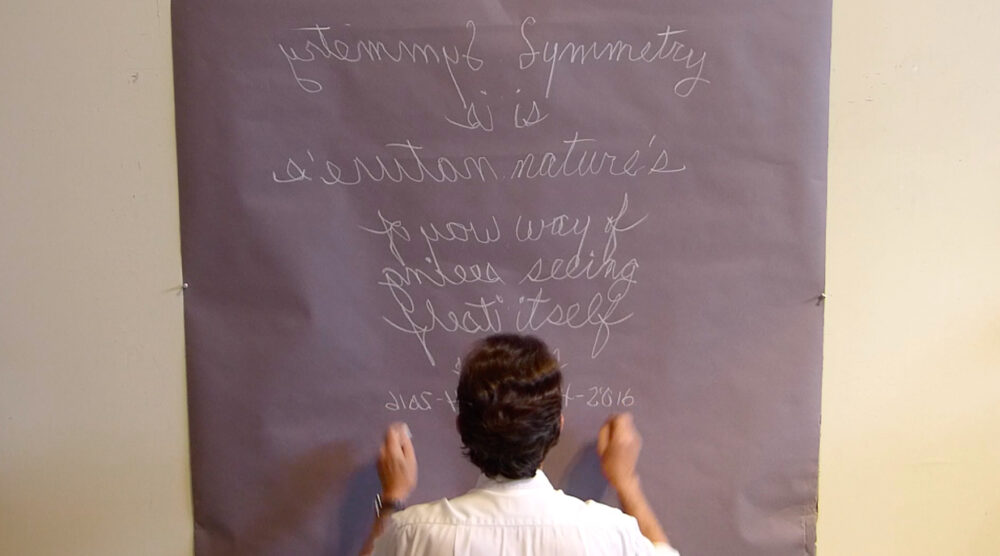 yrtemmyS Symmetry
si is
s'erutan nature's
fo yaw way of
gniees seeing
flesti itself
6102- -2016